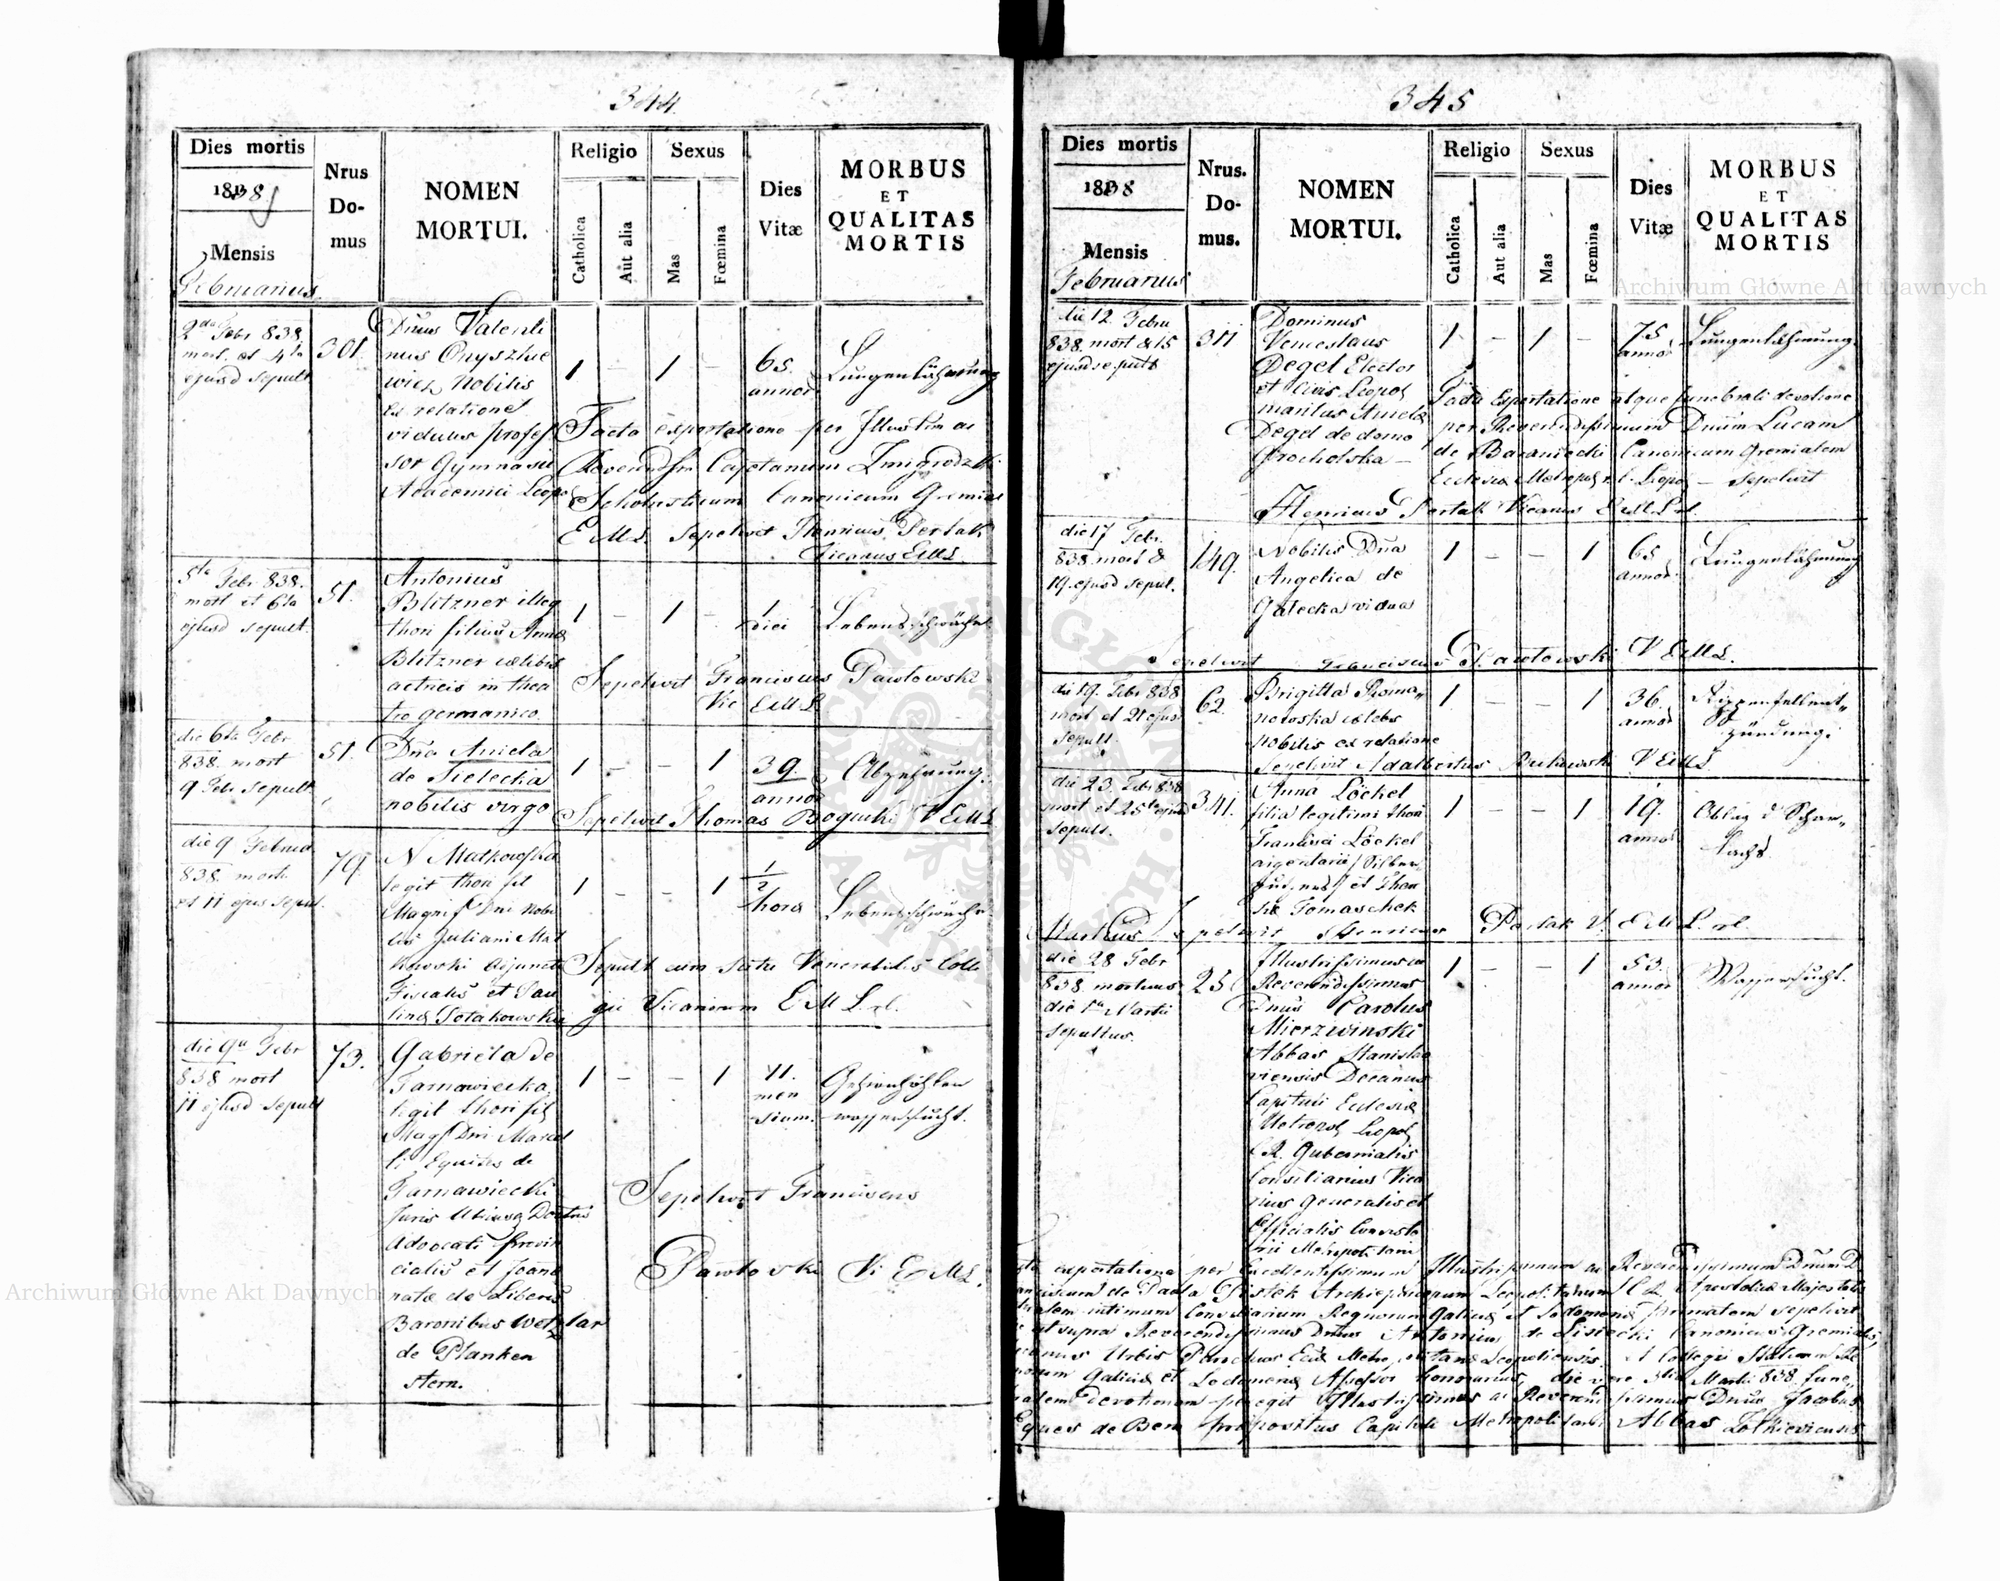 344
Dies mortis
1838
Mensis
Februarius
Nrus Do- mus
NOMEN MORTUI.
Religio
Catholica
Aut alia
Sexus
Mas
Fœmina
Dies Vitæ
MORBUS ET QUALITAS MORTIS
2da Febr 838.
mort. et 4ta
ejusd sepult
301.
Dnus Valenti
nus Onyszkie
wicz Nobilis
ex relatione
viduus profes
sor Gymnasii
Academici Leopol
1 – 1 –
65.
annor
Lungenlähmung
Facta exportatione per Illustrem ac
Reverendissim Capetanum Zmigrodzki
Scholasticum Canonicum Gremial
E.M.L. sepelivit Henricus Pertak
Vicarius EML.
5ta Febr 838.
mort et 6ta
ejusd sepult.
51.
Antonius
Blitzner illeg
thori filius Annæ
Blitzner cælibis
actricis in thea
tro germanico.
1 – 1 –
1
diei
Lebensschwäche
Sepelivit Franciscus Pawłowski
Vic EML.
die 6ta Febr
838. mort
9 Febr sepult
51.
Dna Aniela
de Sielecka
nobilis virgo
1 – – 1
39.
annor
Abzehrung.
Sepelivit Thomas Bogucki V EML
die 9 Februar
838. mort.
et 11 ejus sepul.
79.
N Matkowska
legit thori fil
Magnif Dni Nobi
lis Juliani Mat
kowski Adjuncti
Fiscalis et Pau
linæ Potakowska
1 – – 1
1/2
hora
Lebensschwäche
Sepult cum Venerabilis Colle
gii Vicariorum E M L.
die 9a Febr
838 mort
11 ejusd sepult
73.
Gabriela de
Tarnawiecka,
legit thori fil
Mag Dni Marcel
li Equitis de
Tarnawiecki
Juris Utriusq Doctoris
Advocati Provin
cialis et Joan
natæ de Liberis
Baronibus Wetzlar
de Planken
stern.
1 – – 1
11.
men
sium.
Gehirnhöhlen
wassersucht.
Sepelivit Franciscus
Pawłowski Vi EML.
345
Dies mortis
1838
Mensis
Februarius
Nrus. Do- mus.
NOMEN MORTUI.
Religio
Catholica
Aut alia
Sexus
Mas
Fœmina
Dies Vitæ
MORBUS ET QUALITAS MORTIS
die 12. Febru
838. mort & 15
ejusd sepult
311
Dominus
Venceslaus
Degel Elector
et Civis Leopol
maritus Anielæ
Degel de domo
Grocholska –
1 – 1 –
75.
annor
Lungenlähmung.
Facta Exportatione atque funebrali devotione
per Reverendissimum Dnum Lucam
de Baraniecki Canonicum Gremialem
Ecclesiæ Metropol Leopol – sepelivit
Henricus Pertak Vicarius EMLrl
die 17 Febr.
838. mort &
19. ejusd sepul.
149.
Nobilis Dna
Angelica de
Gałecka vidua
1 – – 1
65
annor.
Lungenlähmung
Sepelivit Franciscus Pawłowski V EML.
die 19. Febr 838
mort et 21 ejus
sepult.
62.
Brigitta Roma„
nowska cælebs
nobilis ex relatione
1 – – 1
36.
annor
Rippenfellent„
zündung.
Sepelivit Adalbertus V EML
die 23. Febr 838
mort et 25ta ejusd
sepult.
341.
Anna Löckel
filia legitimi thori
Francisci Löckel
argentarii
et There
siæ Tomaschek
1 – – 1
19.
annor
Sepelivit Henricus Pertak V. EML. rl.
Martius
die 28 Febr
838 mortuus
die 1a Martii
sepultus.
25
Illustrissimus ac
Reverendissimus
Dnus Carolus
Mierzwinski
Abbas Stanisła
viensis Decanus
Capituli Ecclesiæ
Metropol Leopol
C.R. Gubernialis
Consiliarius Vica
rius Generalis et
Officialis Consisto
rii Metropolitani
1 – – 1
53.
annor
Wassersucht.
exportatione per Excellentissimum Illustrissimum ac Reverendissimum Dnum D
anciscum de Paula Pistek Archiepiscopum Leopolitanum S C R Apostolicæ Majestatis
alem intimum Consiliarium Regnorum Galiciæ et Lodomeriæ Primatem sepelivit
ut supra Reverendissimus Dnus Antonius de Lisiecki Canonicus Gremialis,
canus Urbis Parochus Eccl Metropolitanæ Leopoliensis. et Collegii Statuum Re
norum Galiciæ et Lodomeriæ Assessor honorarius, die vero 3tia Martii 838. fune„
alem devotionem peregit Illustrissimus ac Reverendissimus Dnus Jacobus
Eques de Bem præpositus Capituli Metropolitani Abbas Zołkieviensis
Archiwum Główne Akt Dawnych
Archiwum Główne Akt Dawnych
ARCHIWUM GŁÓWNE AKT DAWNYCH